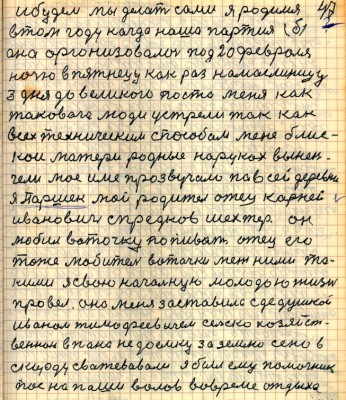 47
и будем мы делат сами я родился
в том году когда наша партия (б)
она организовалос под 20 февраля
ночю в пятнецу как раз на маслиницу
3 дня до великого поста меня как
таковога люди устрели так как
всех техническим способам мене близ-
кои матери родные на руках вынен-
чели мое име прозвучало па всей деревни
я Паршен мой родител отец карней
иванович с предков шехтер. он
любил воточку попиват. отец его
тоже любител воточки меж ними та-
кими я свою началную молодою жизн
провел. она меня заставила с дедушкой
иваном тимофеевичем селско хозяйст-
венном
за землю сено в
скирду сватевавали я был ему помочник
пас на пашни волов вовреме отдыха